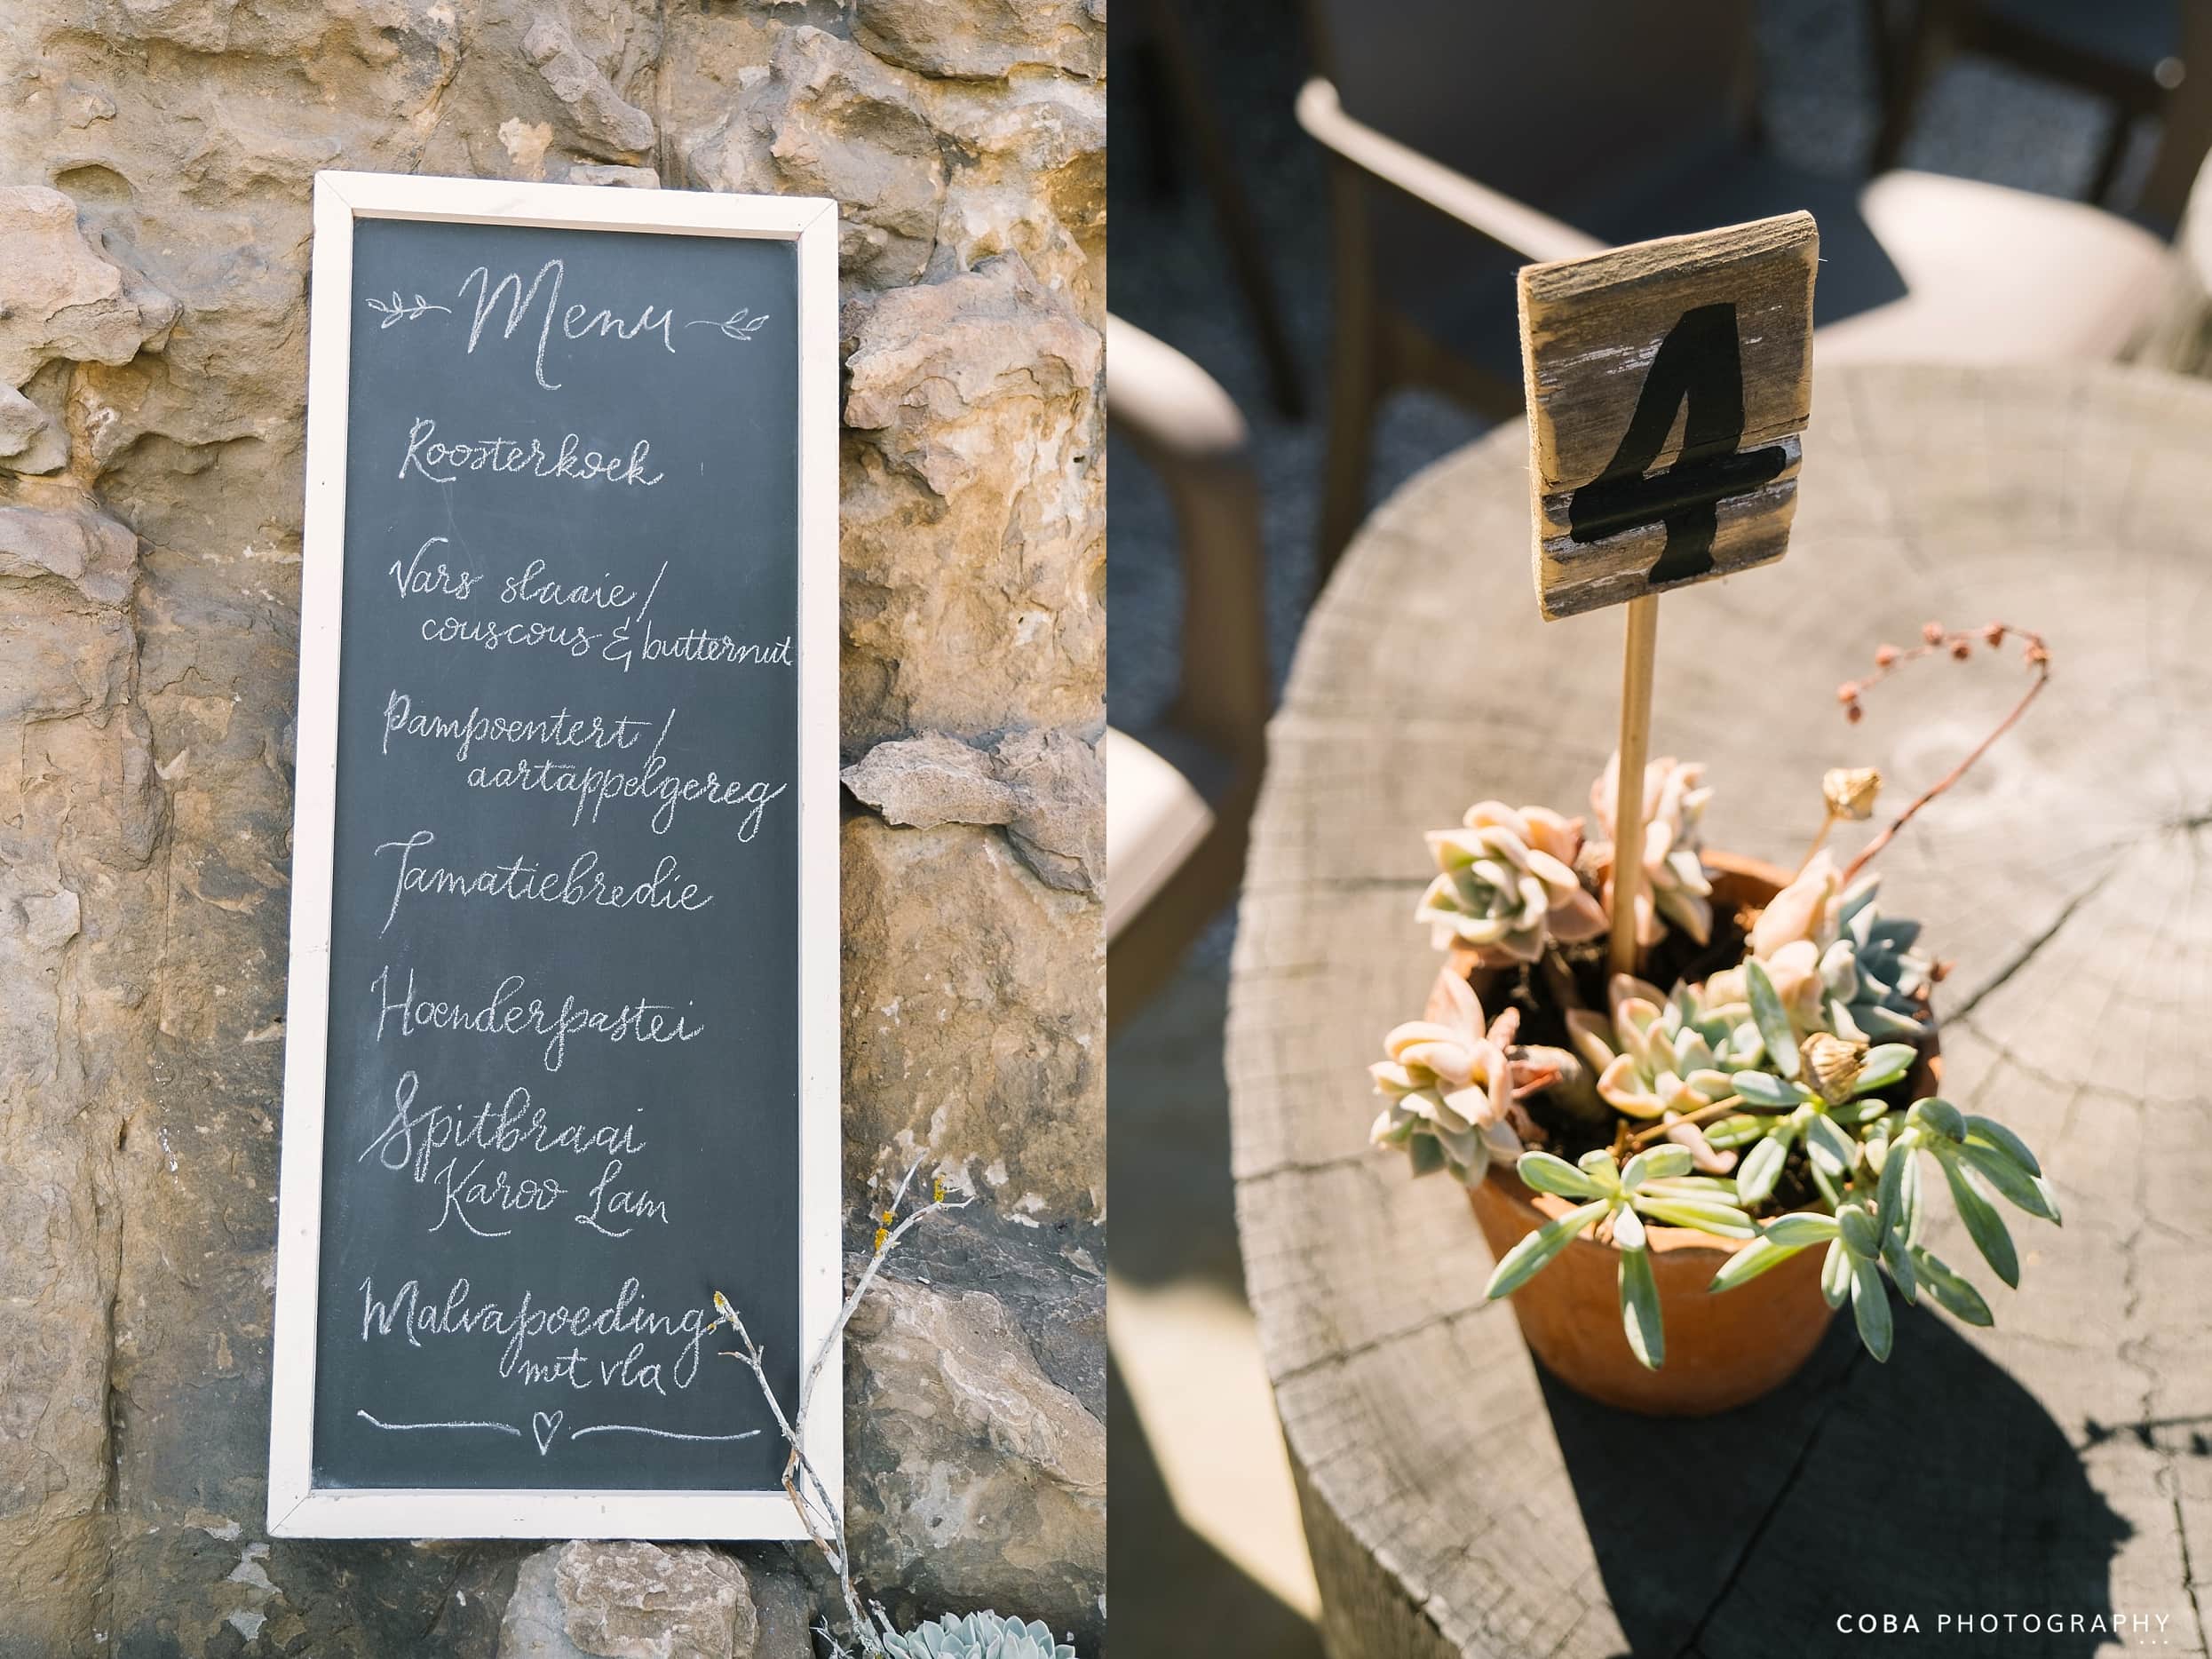 Menu
Roosterkoek
Vars slaaie/
couscous & butternut
Pampoentert/
aartappelgereg
Tamatiebredie
Hoenderpastei
Spitbraai
Karoo Lam
Malvapoeding
met vla
4
COBA PHOTOGRAPHY